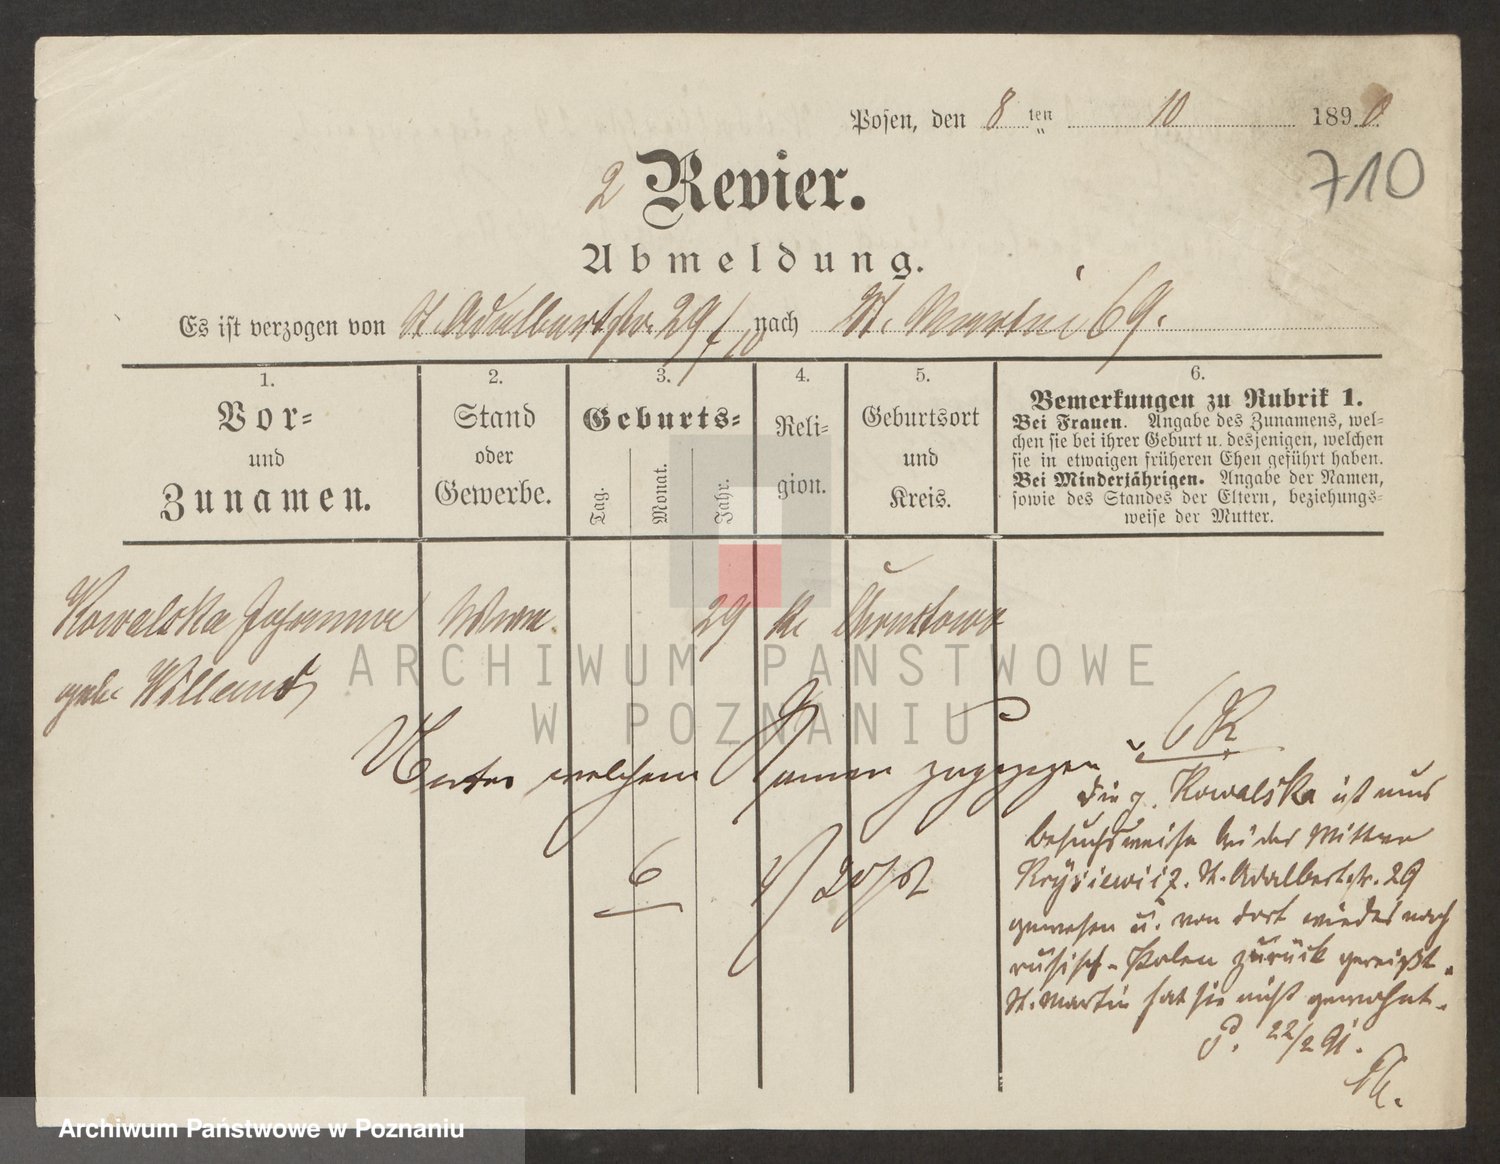 Posen, den 8 ten 10 1890
710
2 Revier.
Abmeldung.
Es ist verzogen von St. Adalbertstr. 29 nach St. Martin 69.
1.
Vor-
und
Zunamen.
2.
Stand
oder
Gewerbe.
3.
Geburts-
Tag.
Monat.
Jahr.
4.
Reli-
gion.
5.
Geburtsort
und
Kreis.
6.
Bemerkungen zu Rubrik 1.
Bei Frauen. Angabe des Zunamens, wel-
chen sie bei ihrer Geburt u. desjenigen, welchen
sie in etwaigen früheren Ehen geführt haben.
Bei Minderjährigen. Angabe der Namen,
sowie des Standes der Eltern, beziehungs-
weise der Mutter.
Kowalska Johanna Wwe. 29 k.
geb.
Unter welchem Namen zugezogen
6
R
Die p. Kowalska ist nur
besuchsweise bei der Wittwe
St. Adalbertstr. 29
gewesen u. von dort wieder nach
russisch-Polen zurück gereist.
St. Martin hat sie nicht gewohnt.
P. 22/2 91.
ARCHIWUM PAŃSTWOWE
W POZNANIU
Archiwum Państwowe w Poznaniu